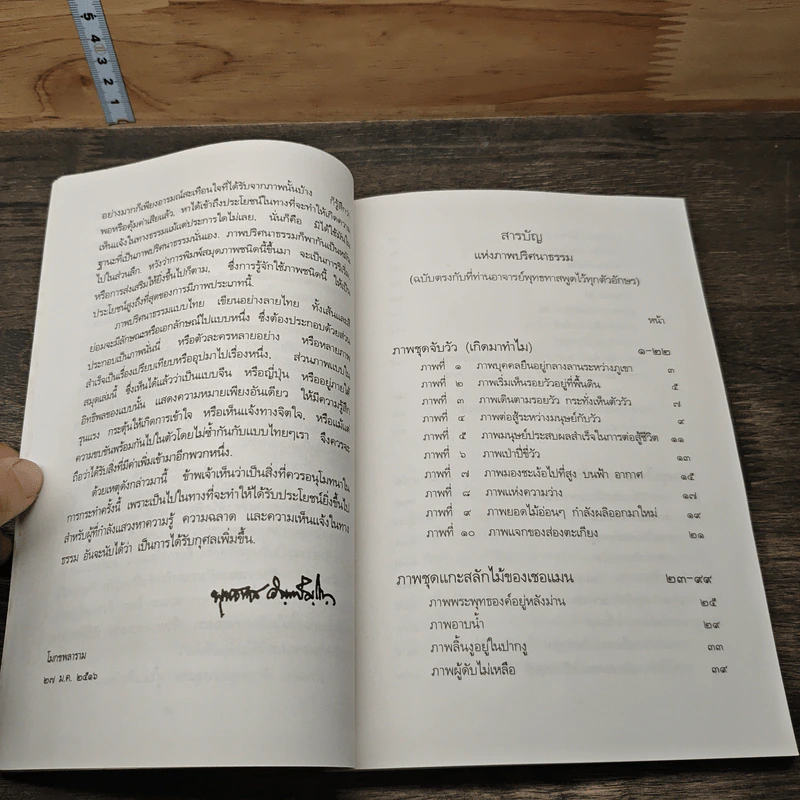 อย่างมากก็เพียงอารมณ์สะเทือนใจที่ได้รับจากภาพนั้นบ้าง ก็รู้สึกว่า
พอหรือคุ้มค่าเสียแล้ว. หาได้เข้าถึงประโยชน์ในทางที่จะทำให้เกิดความ
เห็นแจ้งในทางธรรมแม้แต่ประการใดไม่เลย. นั่นก็คือ มิได้ใช้มันใน
ฐานะที่เป็นภาพปริศนาธรรมนั่นเอง. ภาพปริศนาธรรมก็พากันเป็นหมัน
ไปในส่วนลึก. หวังว่าการพิมพ์สมุดภาพชนิดนี้ขึ้นมา จะเป็นการริเริ่ม
หรือการส่งเสริมให้ยิ่งขึ้นไปก็ตาม, ซึ่งการรู้จักใช้ภาพชนิดนี้ ให้เป็น
ประโยชน์สูงถึงที่สุดของการมีภาพประเภทนี้.
ภาพปริศนาธรรมแบบไทย เขียนอย่างลายไทย ทั้งเส้นและสี
ย่อมจะมีลักษณะหรือเอกลักษณ์ไปแบบหนึ่ง ซึ่งต้องประกอบด้วยส่วน
ประกอบเป็นภาพนั่นนี่ หรือตัวละครหลายอย่าง หรือหลายภาพ
สำเร็จเป็นเรื่องเปรียบเทียบหรืออุปมาไปเรื่องหนึ่ง, ส่วนภาพแบบใน
สมุดเล่มนี้ ซึ่งเห็นได้แล้วว่าเป็นแบบจีน หรือญี่ปุ่น หรืออยู่ภายใต้
อิทธิพลของแบบนั้น แสดงความหมายเพียงอันเดียว ให้มีความรู้สึก
รุนแรง กระตุ้นให้เกิดการเข้าใจ หรือเห็นแจ้งทางจิตใจ, หรือแม้แต่
ความขบขันพร้อมกันไปในตัวโดยไม่ซ้ำกันกับแบบไทยๆเรา จึงควรจะ
ถือว่าได้รับสิ่งที่มีค่าเพิ่มเข้ามาอีกพวกหนึ่ง.
ด้วยเหตุดังกล่าวมานี้ ข้าพเจ้าเห็นว่าเป็นสิ่งที่ควรอนุโมทนาใน
การกระทำครั้งนี้ เพราะเป็นไปในทางที่จะทำให้ได้รับประโยชน์ยิ่งขึ้นไป
สำหรับผู้ที่กำลังแสวงหาความรู้ ความฉลาด และความเห็นแจ้งในทาง
ธรรม อันจะนับได้ว่า เป็นการได้รับกุศลเพิ่มขึ้น.
พุทธทาส อินทปัญโญ
โมกขพลาราม
๒๗ ม.ค. ๒๕๑๖
สารบัญ
แห่งภาพปริศนาธรรม
(ฉบับตรงกับที่ท่านอาจารย์พุทธทาสพูดไว้ทุกตัวอักษร)
หน้า
ภาพชุดจับวัว (เกิดมาทำไม) ๑-๒๒
ภาพที่ ๑ ภาพบุคคลยืนอยู่กลางลานระหว่างภูเขา ๓
ภาพที่ ๒ ภาพเริ่มเห็นรอยวัวอยู่ที่พื้นดิน ๕
ภาพที่ ๓ ภาพเดินตามรอยวัว กระทั่งเห็นตัววัว ๗
ภาพที่ ๔ ภาพต่อสู้ระหว่างมนุษย์กับวัว ๙
ภาพที่ ๕ ภาพมนุษย์ประสบผลสำเร็จในการต่อสู้ชีวิต ๑๑
ภาพที่ ๖ ภาพเป่าปี่ขี่วัว ๑๓
ภาพที่ ๗ ภาพมองชะเง้อไปที่สูง บนฟ้า อากาศ ๑๕
ภาพที่ ๘ ภาพแห่งความว่าง ๑๗
ภาพที่ ๙ ภาพยอดไม้อ่อนๆ กำลังผลิออกมาใหม่ ๑๙
ภาพที่ ๑๐ ภาพแจกของส่องตะเกียง ๒๑
ภาพชุดแกะสลักไม้ของเชอแมน ๒๓-๙๙
ภาพพระพุทธองค์อยู่หลังม่าน ๒๕
ภาพอาบน้ำ ๒๙
ภาพลิ้นงูอยู่ในปากงู ๓๓
ภาพผู้ดับไม่เหลือ ๓๙
5
4
3
2
1